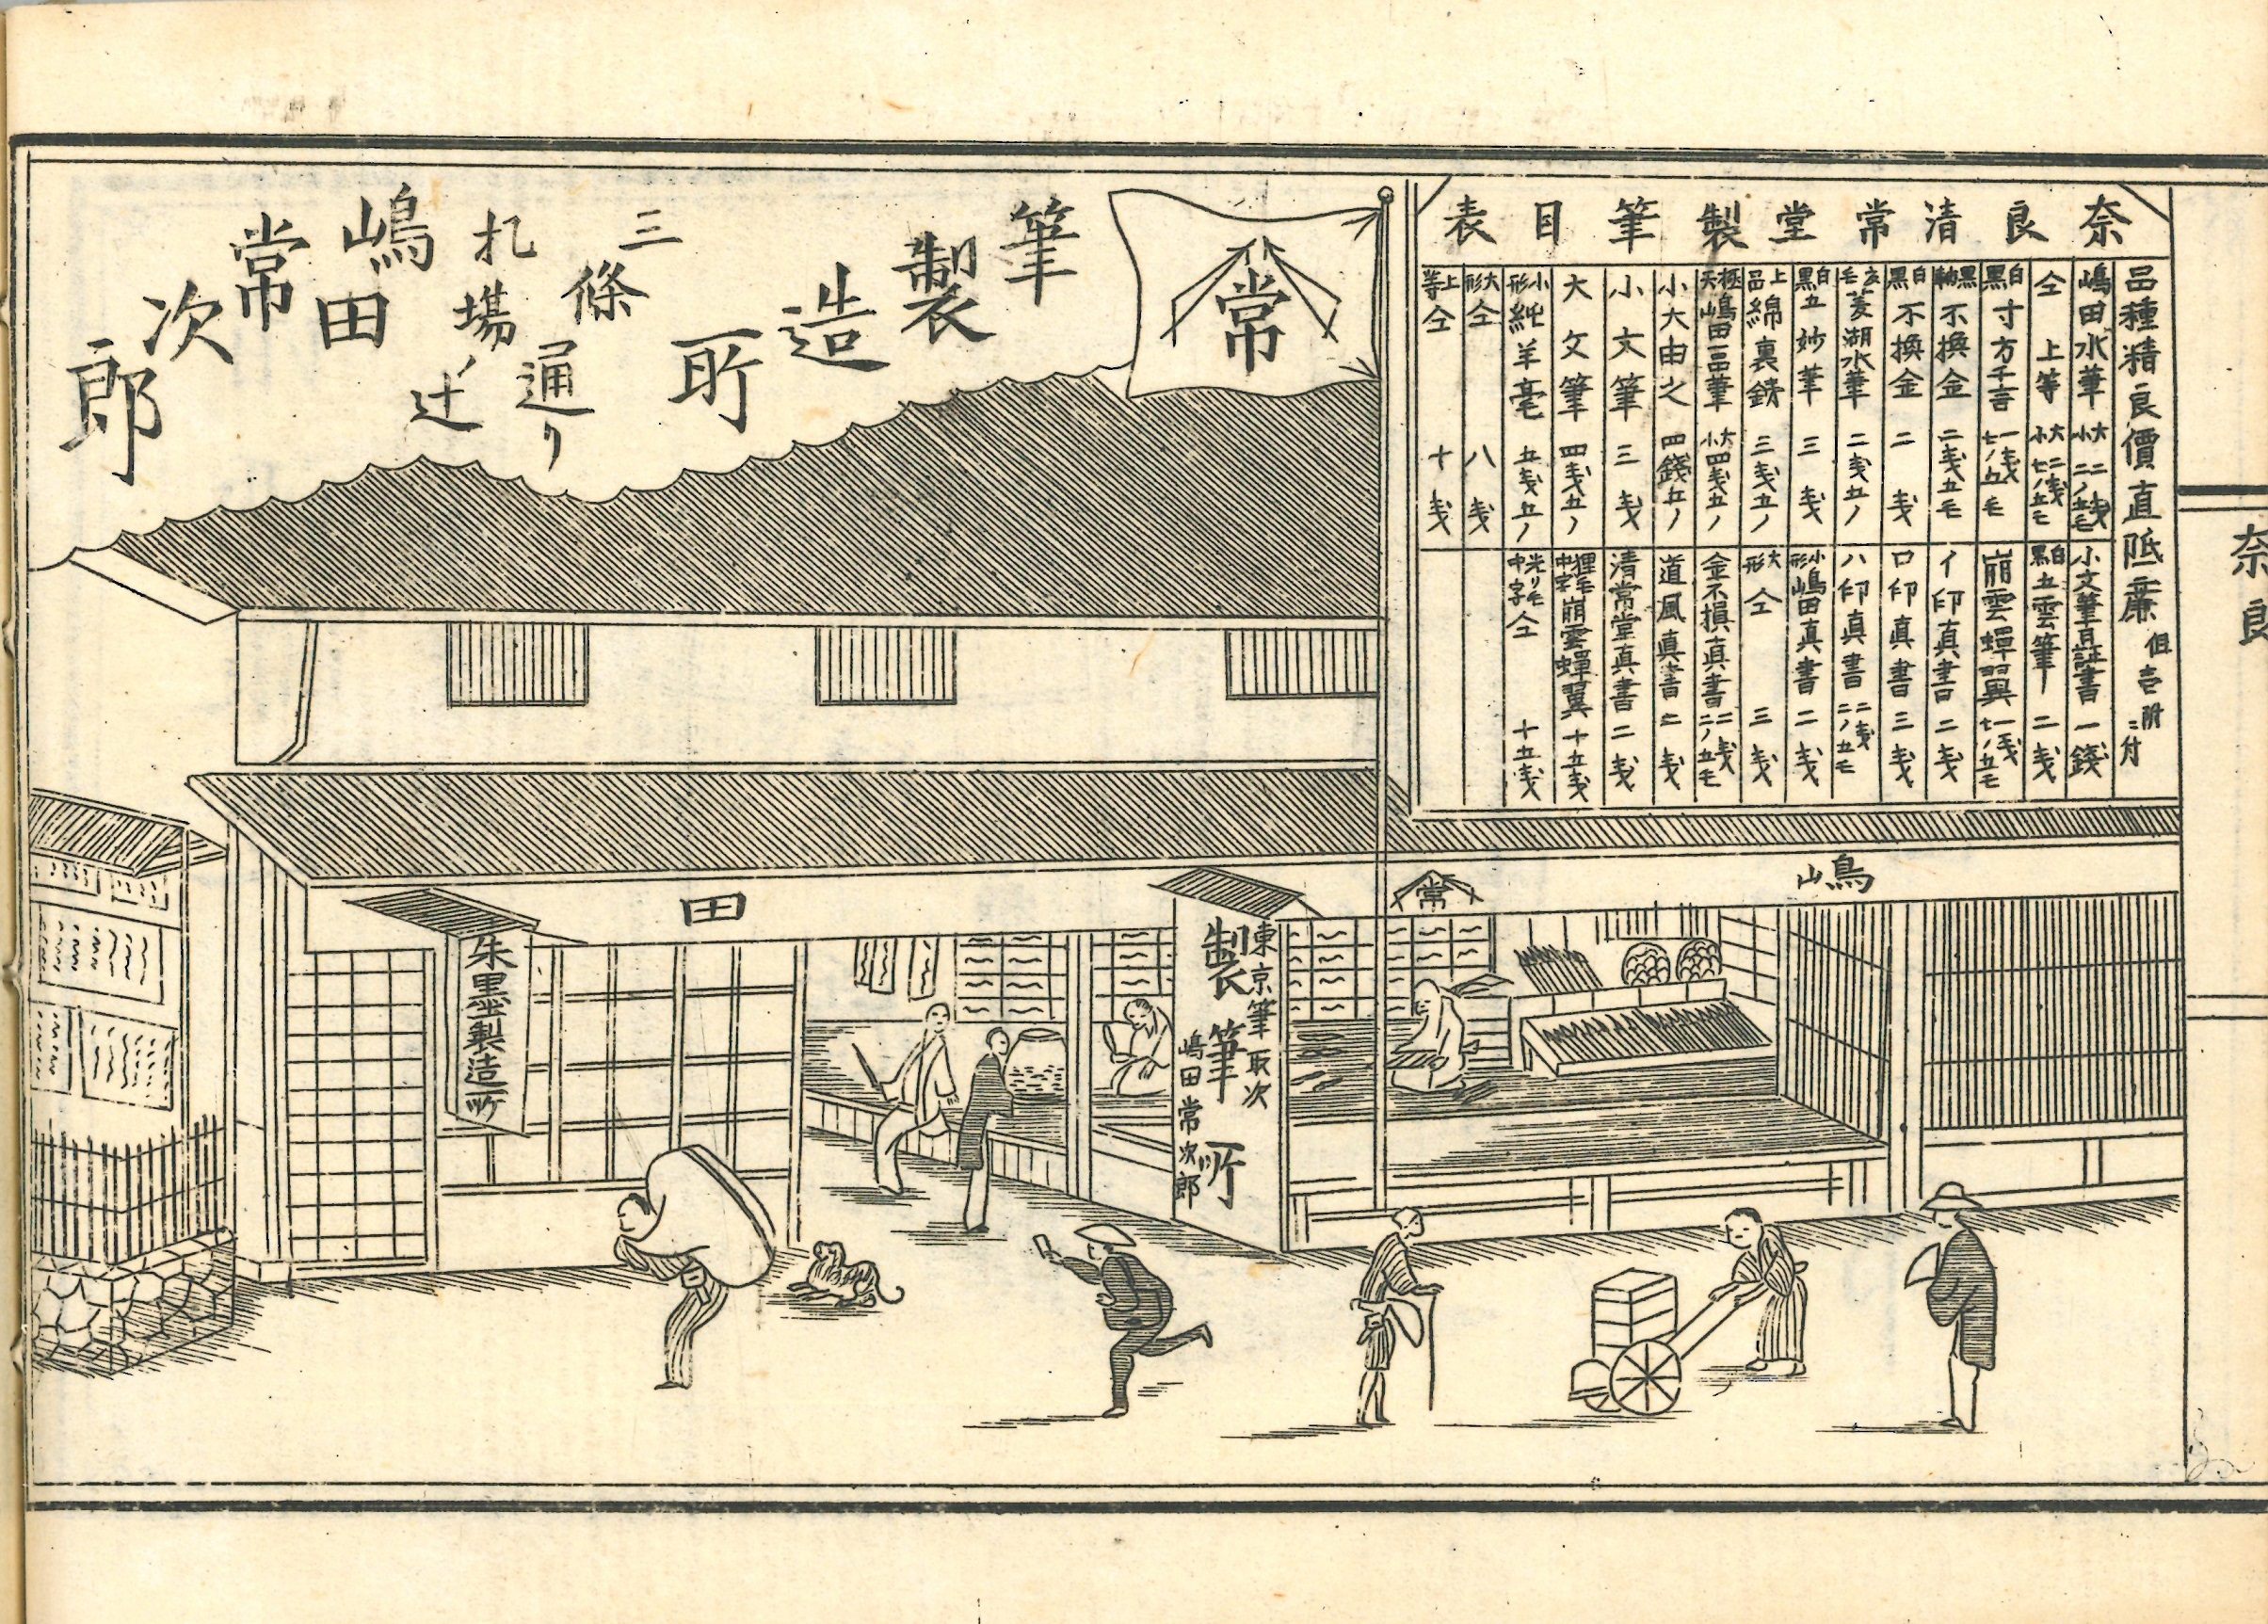 奈良清常堂製筆目表
品種精良價直低廉 但壱附ニ付
嶋田水筆 大 二戋 小 二ノ五毛
仝上等 大 二戋 小 七ノ五毛
白黒 寸方千言 一戋七ノ五毛
黒軸 不換金 二戋五毛
白黒 不換金 二戋
玄毛 菱湖水筆 二戋五ノ
白黒 五妙筆 三戋
上品 綿裏鋳 三戋五ノ
極天 嶋田一品筆 大小 四戋五ノ
小大由之 四錢五ノ
小文筆 三戋
大文筆 四戋五ノ
小形 純羊毫 五戋五ノ
大形 仝 八戋
上等 仝 十戋
小文筆真書 一錢
白黒 五雲筆 二戋
崩雲蟬翼 一戋七ノ五毛
イ印真書 二戋
ロ印真書 三戋
ハ印真書 二戋二ノ五毛
小形 嶋田真書 二戋
大形 仝 三戋
金不損真書 二戋二ノ五毛
道風真書 七戋
清常堂真書 二戋
狸毛中字 崩雲蟬翼 十五戋
光リモ中字 仝 十五戋
常
筆製造所
三條通り
札場ノ辻
嶋田常次郎
嶋
常
田
東京筆取次
製筆所
嶋田常次郎
朱墨製造所
奈良